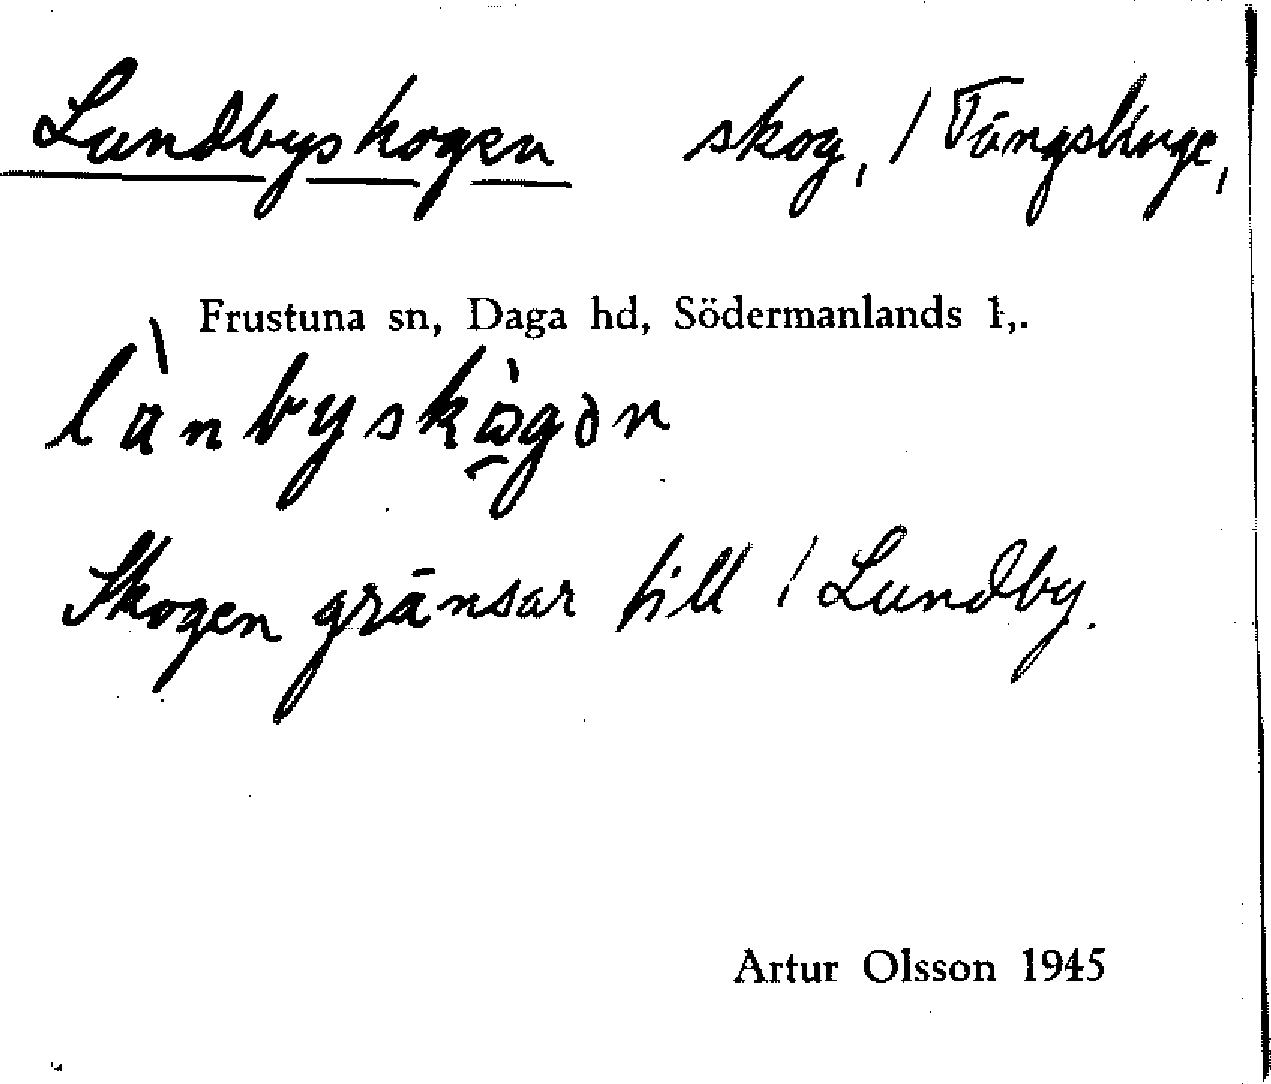 Lundbyskogen skog, / Tängslinge,
Frustuna sn, Daga hd, Södermanlands l,.
Skogen gränsar till / Lundby.
Artur Olsson 1945